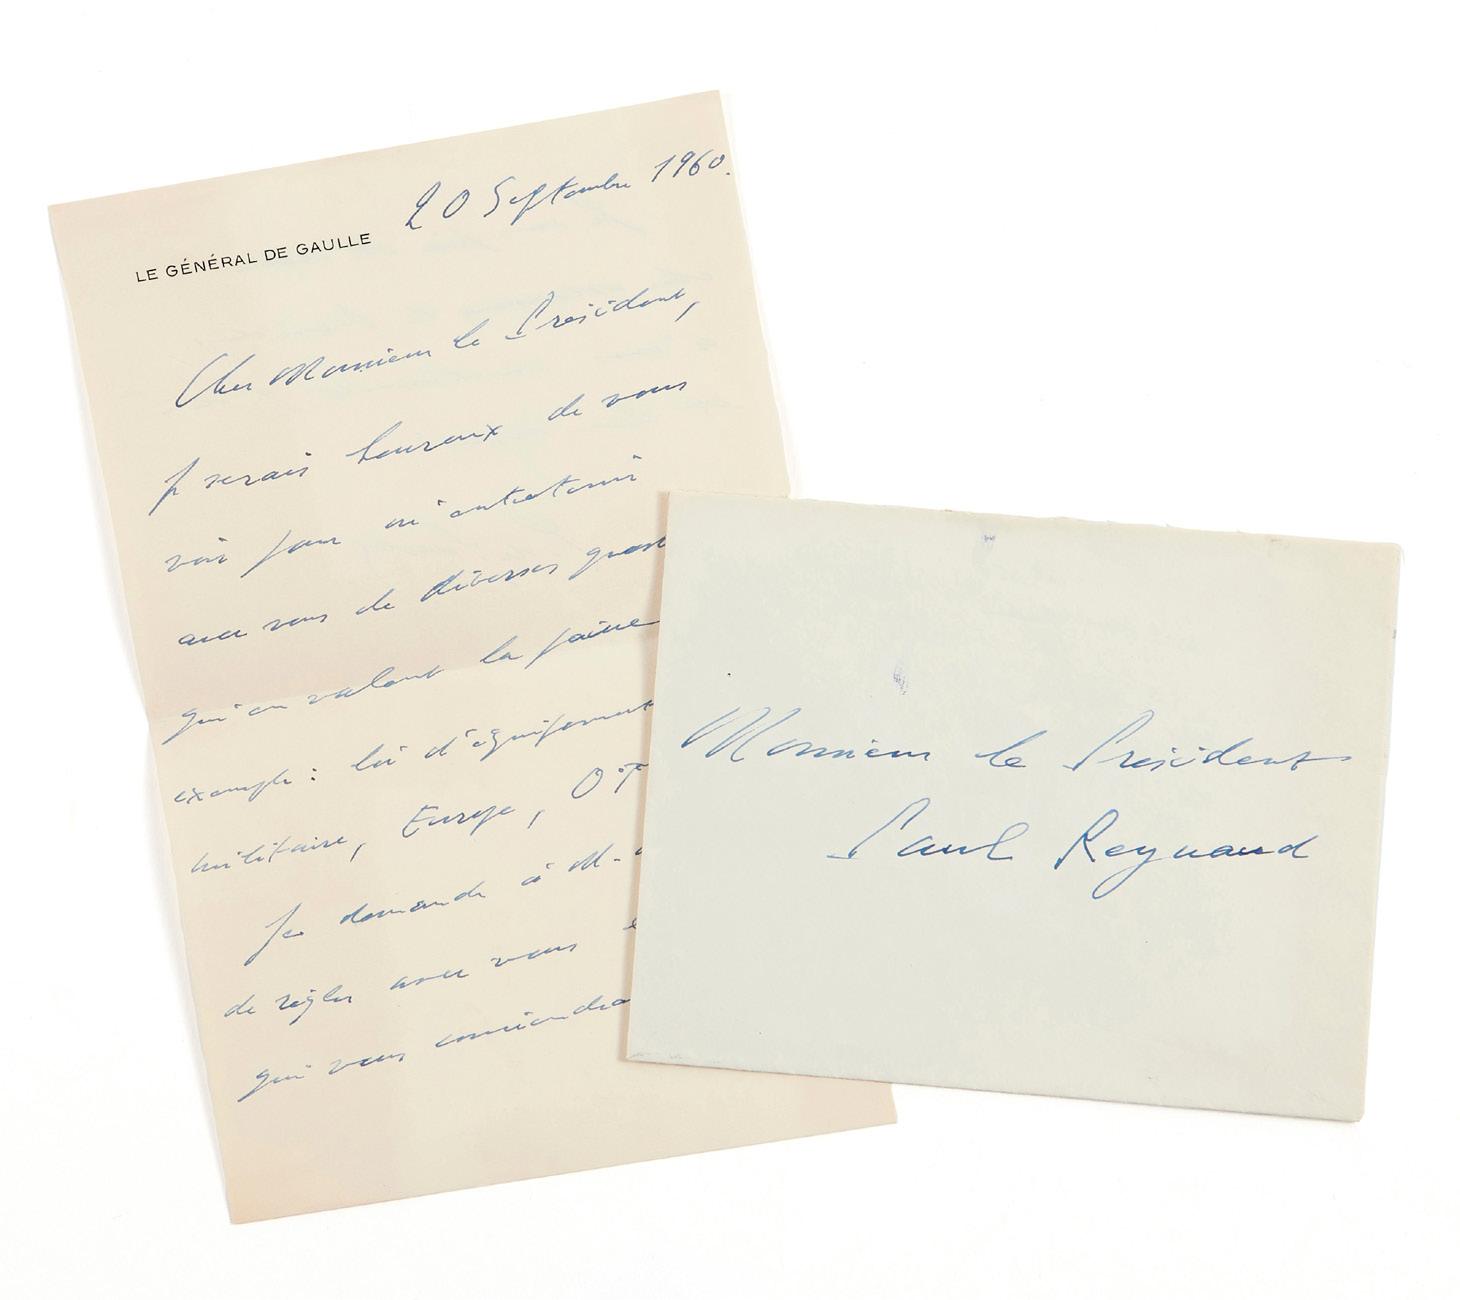 20 Septembre 1960.
LE GÉNÉRAL DE GAULLE
Cher Monsieur le Président,
Je serais heureux de vous
voir pour m'entretenir
avec vous de diverses quest
qui en valent la peine
exemple : loi d'équipement
militaire, Europe, OT
Je demande à M.
de régler avec vous
qui vous conviendra
Monsieur le Président
Paul Reynaud